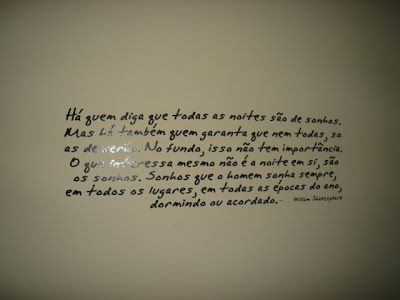 Há quem diga que todas as noites são de sonhos.
Mas há também quem garanta que nem todas, so
as de verão. No fundo, isso não tem importância.
O que interessa mesmo não é a noite em si, são
os sonhos. Sonhos que o homem sonha sempre,
em todos os lugares, em todas as épocas do ano,
dormindo ou acordado.- William Shakespeare